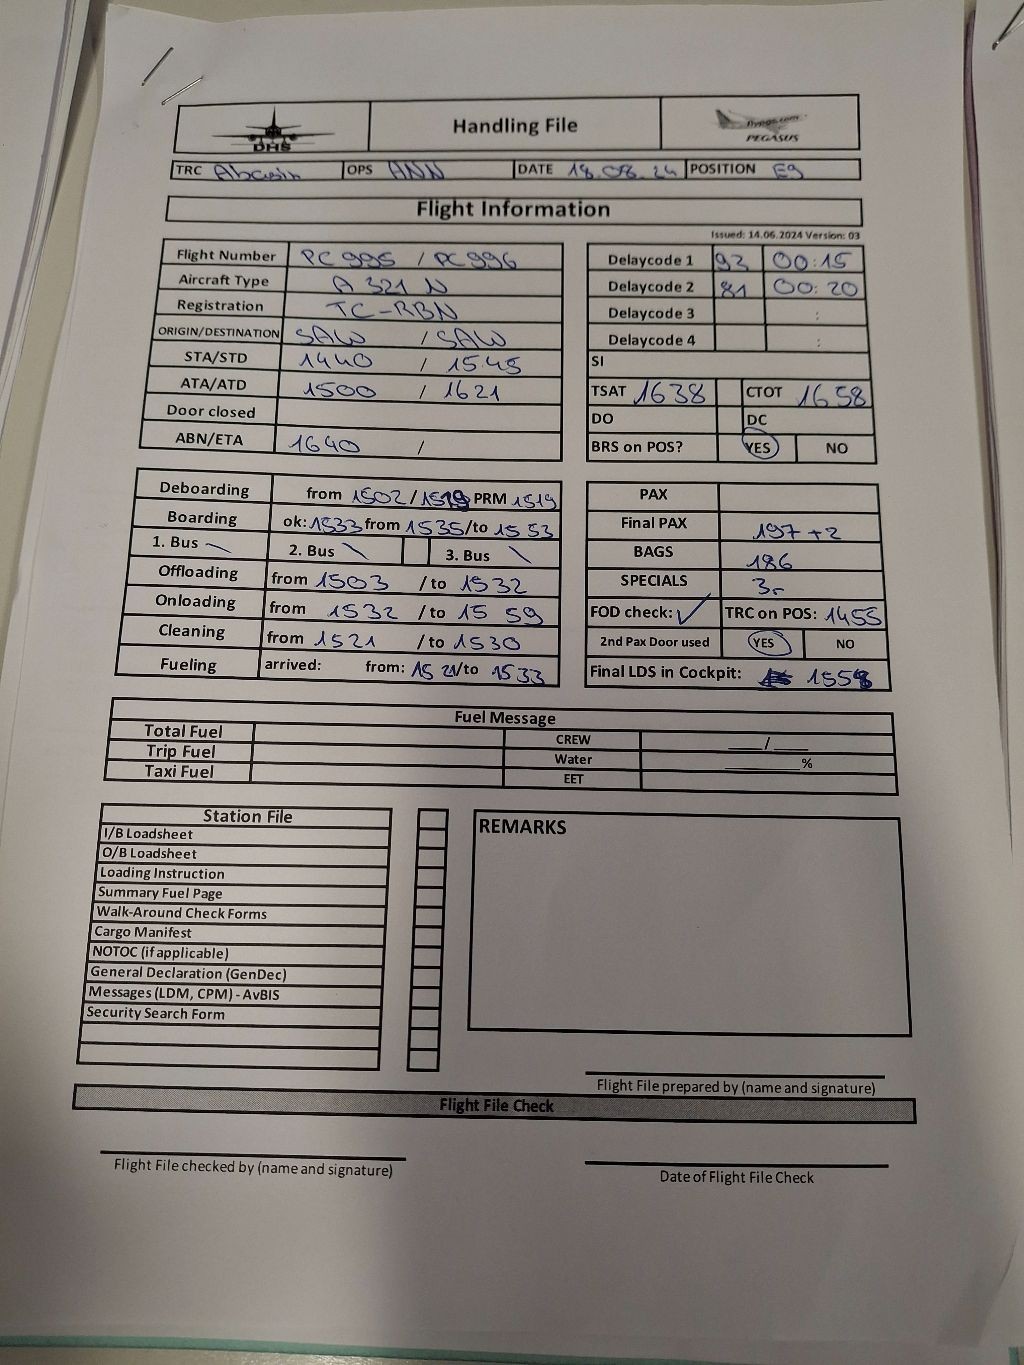 DHS
Handling File
flypgs.com
PEGASUS
TRC OPS ANN DATE 18.08.24 POSITION E9
Flight Information
Issued: 14.06.2024 Version: 03
Flight Number PC 995 / PC 996
Aircraft Type A 321 N
Registration TC-RBN
ORIGIN/DESTINATION SAW / SAW
STA/STD 1440 / 1545
ATA/ATD 1500 / 1621
Door closed
ABN/ETA 1640 /
Delaycode 1 93 00:15
Delaycode 2 81 00:20
Delaycode 3 :
Delaycode 4 :
SI
TSAT 1638 CTOT 1658
DO DC
BRS on POS? YES NO
Deboarding from 1502 / PRM 1519
Boarding ok: 1533 from 1535 /to 1553
1. Bus 2. Bus 3. Bus
Offloading from 1503 /to 1532
Onloading from 1532 /to 1559
Cleaning from 1521 /to 1530
Fueling arrived: from: 1521 /to 1533
PAX
Final PAX 197 +2
BAGS 186
SPECIALS
FOD check: ✓ TRC on POS: 1455
2nd Pax Door used YES NO
Final LDS in Cockpit:
Fuel Message
Total Fuel CREW ___/___
Trip Fuel Water ______%
Taxi Fuel EET
Station File
I/B Loadsheet
O/B Loadsheet
Loading Instruction
Summary Fuel Page
Walk-Around Check Forms
Cargo Manifest
NOTOC (if applicable)
General Declaration (GenDec)
Messages (LDM, CPM) - AvBIS
Security Search Form
REMARKS
Flight File prepared by (name and signature)
Flight File Check
Flight File checked by (name and signature)
Date of Flight File Check